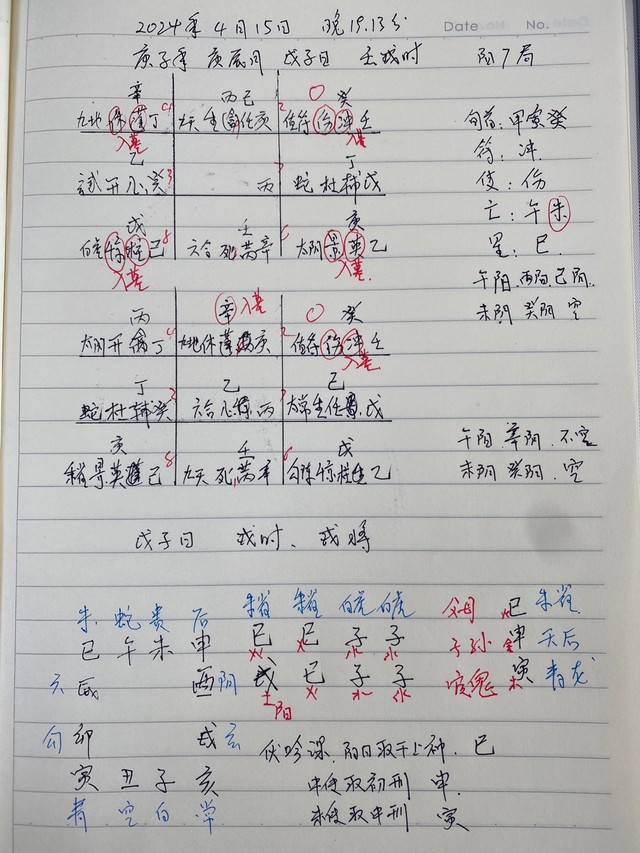 2024年4月15日 晚19.13分
Date No.
庚子年 庚辰月 戊子日 壬戌时 阳7局
辛 丙己 癸
九地休蓬丁 九天生任庚 值符伤冲壬
入墓 入墓
乙 丁
开心癸 丙 蛇杜辅戊
戊 壬 庚
白虎惊柱己 六合死芮辛 太阴景英乙
入墓 入墓
旬首:甲寅癸
符:冲
使:伤
亡:午未
星:巳
午阳.丙阴.己阴.
未阴 癸阴 空
丙 辛入墓 癸
太阴开禽丁 九地休蓬庚 值符伤冲壬
入墓
丁 乙 己
蛇杜辅癸 六合心丙 太常生任戊
庚 壬 戊
朱雀景英己 九天死芮辛 勾陈惊柱乙
午阳.辛阴.不空
未阴 癸阴.空
戊子日 戌时、戌将
朱 蛇 贵 后 朱雀 朱雀 白虎 白虎 父母 巳 朱雀
巳 午 未 申 巳 巳 子 子 子孙 申 天后
火 火 水 水 金
六 辰 酉 阴 戊 巳 子 子 官鬼 寅 青龙
土 火 水 水 木
阳
勾 卯 戌 玄 伏吟课.阳日取干上神.巳
寅 丑 子 亥 中传取初刑 申.
青 空 白 常 末传取中刑 寅